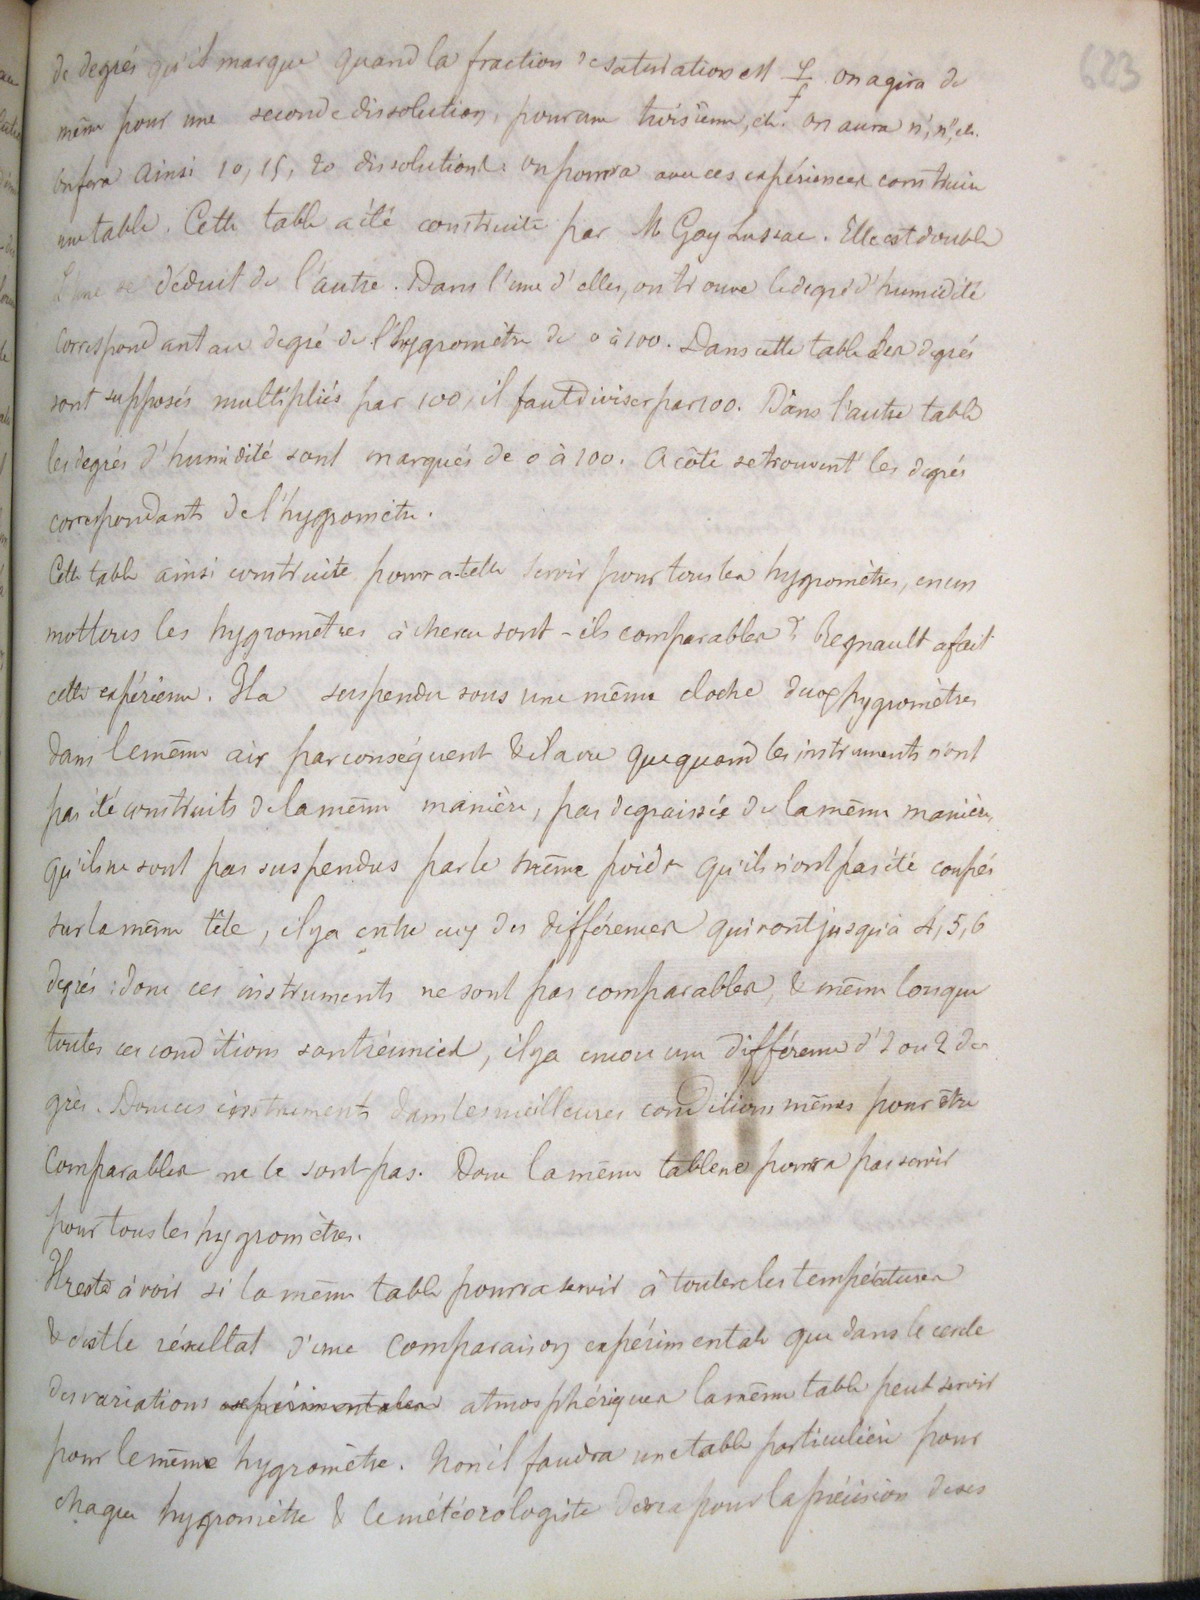 623
de degrés qu'il marque quand la fraction de saturation est f/f on agira de
même pour une seconde dissolution, pour une troisième, etc. on aura n', n'', etc.
on fera ainsi 10, 15, 20 dissolutions. on pourra avec ces expériences construire
une table. Cette table a été construite par Mr Gay Lussac. Elle est double
L'une se déduit de l'autre. Dans l'une d'elles, on trouve le degré d'humidité
correspondant au degré de l'hygromètre de 0 à 100. Dans cette table les degrés
sont supposés multipliés par 100, il faut diviser par 100. Dans l'autre table
les degrés d'humidité sont marqués de 0 à 100. A côté se trouvent les degrés
correspondants de l'hygromètre.
Cette table ainsi construite pourra-t-elle servir pour tous les hygromètres, en un
mot tous les hygromètres à cheveu sont-ils comparables ? Regnault a fait
cette expérience. Il a suspendu sous une même cloche deux hygromètres
dans le même air par conséquent & il a vu que quand les instruments n'ont
pas été construits de la même manière, pas degraissés de la même manière,
qu'ils ne sont pas suspendus par le même poids & qu'ils n'ont pas été coupés
sur la même tête, il y a entre eux des différences qui vont jusqu'à 4, 5, 6
degrés : donc ces instruments ne sont pas comparables, & même lorsque
toutes ces conditions sont réunies, il y a encore une différence d'1 ou 2 de
grés. Donc ces instruments dans les meilleures conditions mêmes pour être
comparables ne le sont pas. Donc la même table ne pourra pas servir
pour tous les hygromètres.
Il reste à voir si la même table pourra servir à toutes les températures
& c'est le résultat d'une comparaison expérimentale que dans le cercle
des variations expérimentales atmosphériques la même table peut servir
pour le même hygromètre. Non il faudra une table particulière pour
chaque hygromètre & le météorologiste devra pour la précision de ses